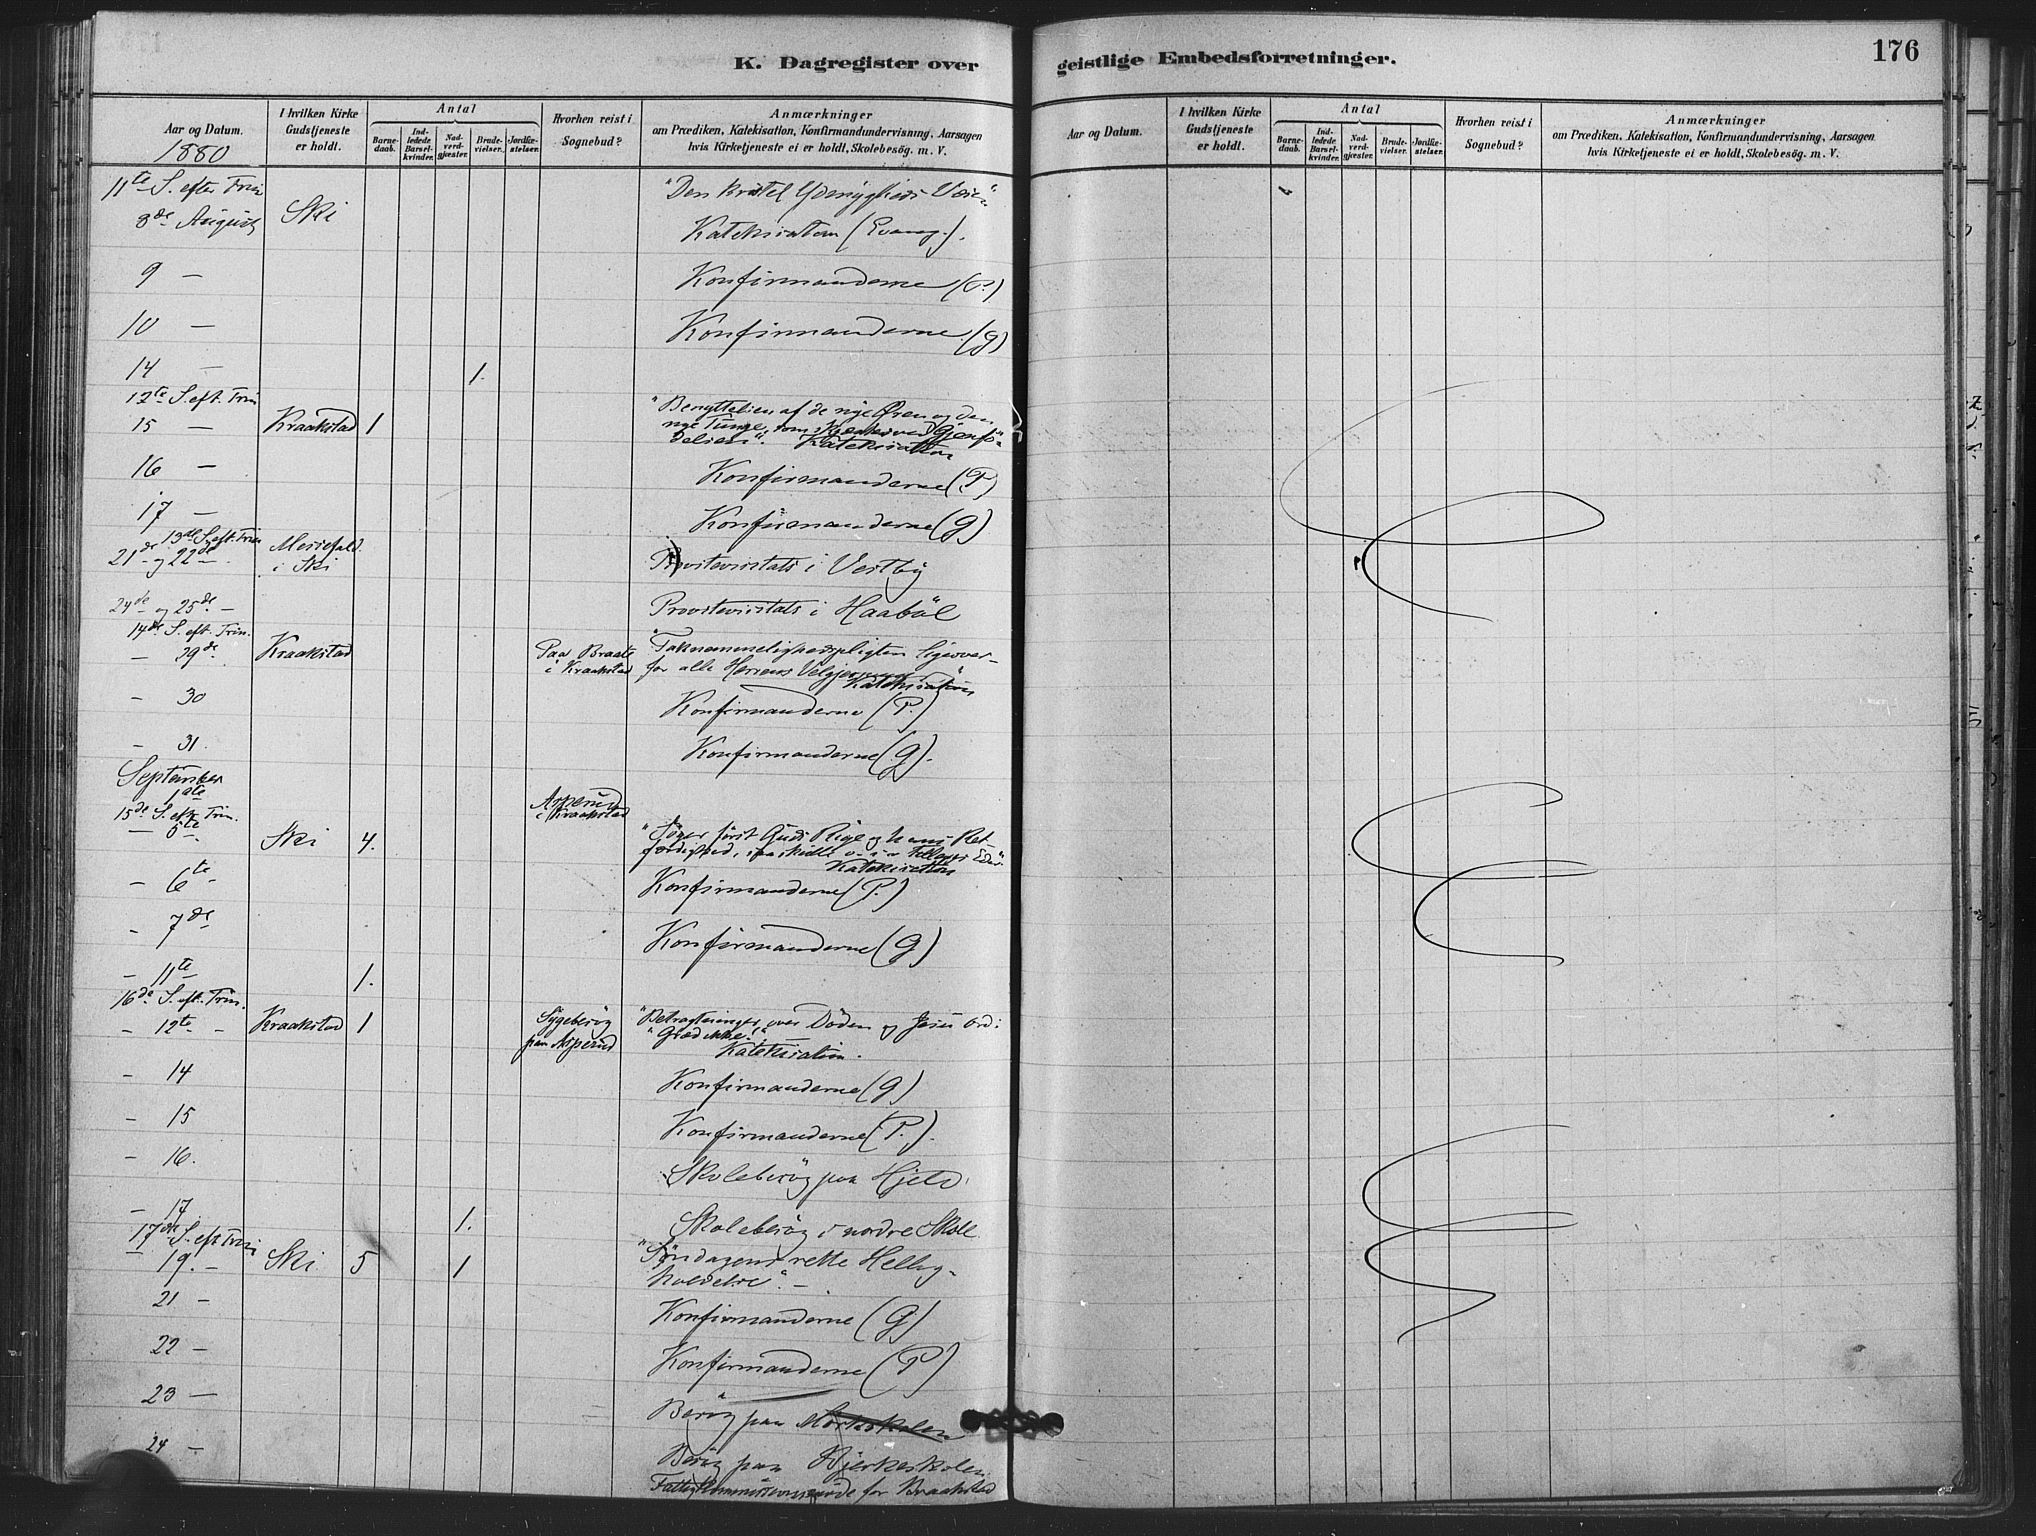 K. Dagregister over geistlige Embedsforretninger.
176
Aar og Datum.
1880
I hvilken Kirke Gudstjeneste er holdt.
Antal
Barnedaab.
Indledede Barselkvinder.
Nadverdgjester.
Brudevielser.
Jordfæstelser.
Hvorhen reist i Sognebud?
Anmærkninger
om Prædiken, Katekisation, Konfirmandundervisning, Aarsagen
hvis Kirketjeneste ei er holdt, Skolebesøg. m. V.
Aar og Datum.
I hvilken Kirke Gudstjeneste er holdt.
Antal
Barnedaab.
Indledede Barselkvinder.
Nadverdgjester.
Brudevielser.
Jordfæstelser.
Hvorhen reist i Sognebud?
Anmærkninger
om Prædiken, Katekisation, Konfirmandundervisning, Aarsagen
hvis Kirketjeneste ei er holdt, Skolebesøg. m. V.
11te S. efter Trin "Den kristel Ydmygheds
8de August Ski Katekisation (Evang.).
9 — Konfirmanderne (P.)
10 — Konfirmanderne (G)
14 — 1.
12te S. eft. Trin "Benyttelsen af de nye Øren og den
15 — Kraakstad 1 nye Tunge, som skjenkes ved Gjenfö-
delsen". Katekisation
16 — Konfirmanderne (P.)
17 — Konfirmanderne (G)
13de S. eft. Trin Messefald
21de og 22de — i Ski Provstevisitats i Vestby
24de og 25de — Provstevisitats i Haaböl
14de S. eft. Trin.
— 29de Kraakstad Paa Braate i Kraakstad "Taknemmelighedspligten ligeover-
for alle Herrens
Katekisation
- 30 Konfirmanderne (P.)
- 31. Konfirmanderne (G).
September
1ste Asperud i Kraakstad
15de S. eft. Trin.
— 5te Ski 4. "Söger först Guds Rige og hans Ret-
færdighed, saa skulle
Katekisation
- 6te - Konfirmanderne (P.)
- 7de Konfirmanderne (G)
- 11te 1.
16de S. eft. Trin.
- 12te - Kraakstad 1 Sygebesög paa Asperud "Betragtninger over Döden og Jesu Ord:
"Græd ikke!"
Katekisation.
- 14 Konfirmanderne (G)
- 15 Konfirmanderne (P.).
- 16. Skolebesög paa Hjeld.
- 17 1. Skolebesög i nordre Skole
17de S. eft Trin
— 19. - Ski 5 1 "Söndagens rette Hellig-
holdelse". —
21 - Konfirmanderne (G)
22 - Konfirmanderne (P)
23 — Besög paa Mörkskolen
24 - Besög paa Bjerkeskolen
Fattigkommissionsmöde for Kraakstad